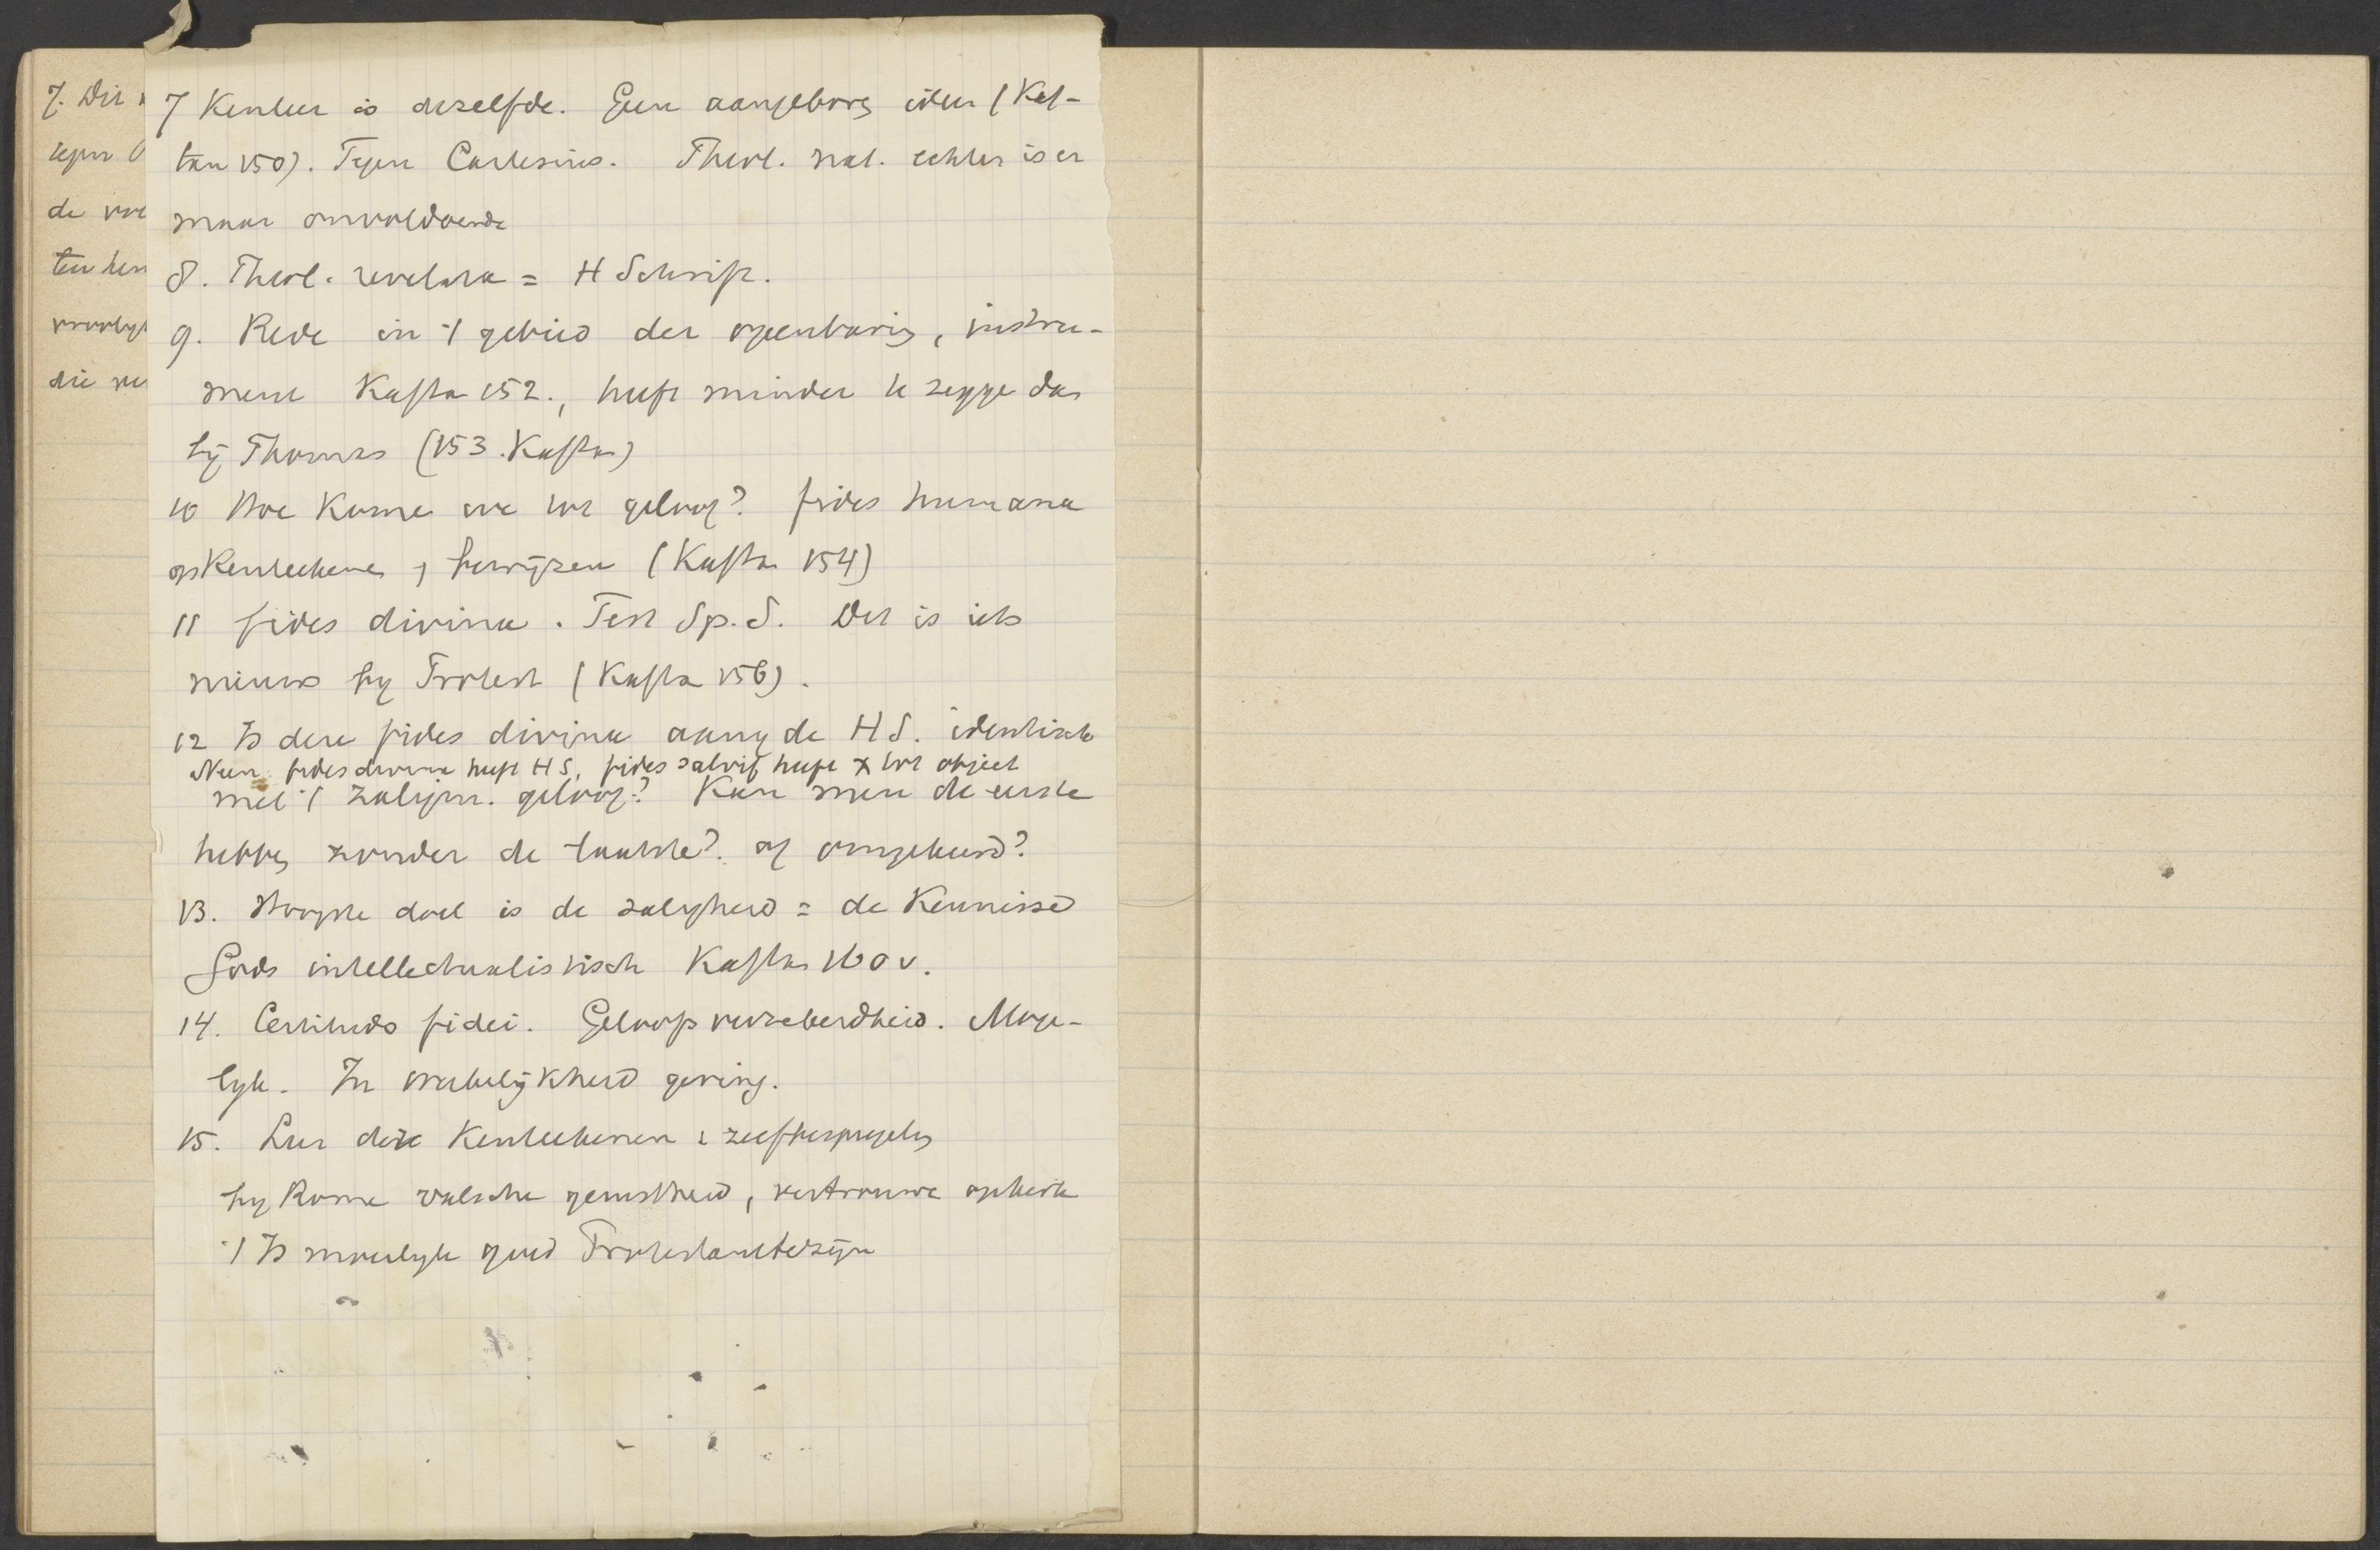 7. Dit
tegen
de
ten
die
7 Kenleer is dezelfde. Geen aangebore ideen (Kaf-
tan 150). Tegen Cartesius. Theol. nat. echter is er
maar onvoldoende
8. Theol. revelata = H Schrift.
9. Rede in 't gebied der openbaring, instru-
ment Kaftan 152., heeft minder te zeggen dan
bij Thomas (153. Kaftan)
10 Hoe komen we tot geloof? fides humana
op kenteekenen, bewijzen (Kaftan 154)
11 fides divina. Test Sp. S. Dit is iets
nieuws by Protest (Kaftan 156).
12 Is deze fides divina aang de H S. identisch
Neen fides divina heeft H S, fides salvif heeft X tot object
met 't zaligm. geloof? Kan men de eerste
hebben zonder de laatste? of omgekeerd?
13. Hoogste doel is de zaligheid = de kennisse
Gods intellectualistisch Kaftan 160 v.
14. Certitudo fidei. Geloofsverzekerdheid. Moge-
lyk. In werkelijkheid gering.
15. Leer deze kenteekenen & zelfbespiegeling
by Rome valsche gerustheid, vertrouwen op kerk
't Is moeilyk goed Protestant te zijn